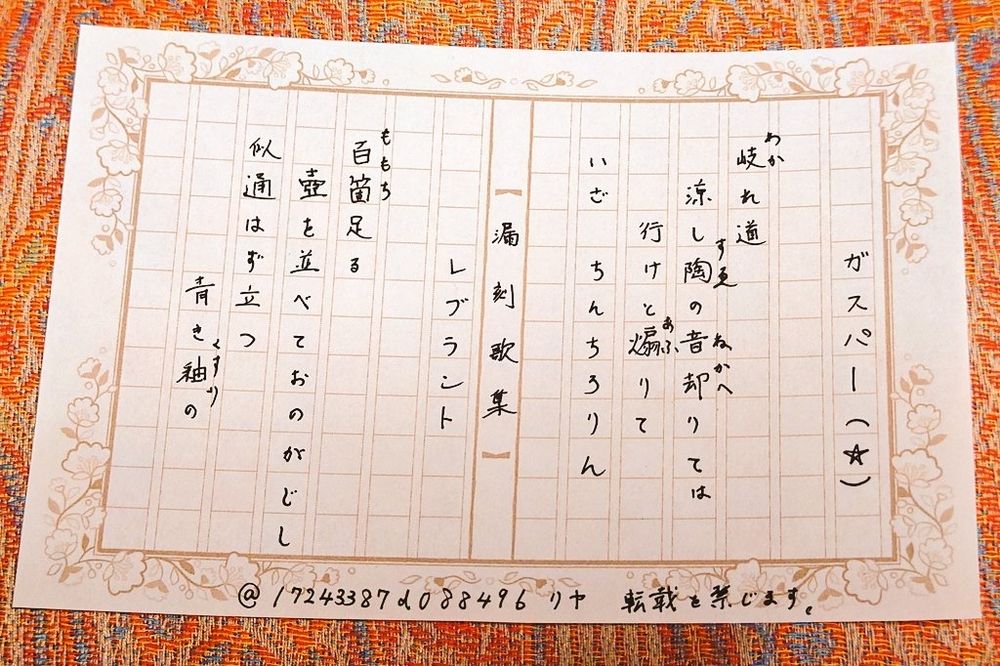 ガスパー(☆)
わか
岐れ道
すゑ ねかへ
涼し陶の音却りては
あふ
行けと煽りて
いざ ちんちろりん
【漏刻歌集】
レブラント
ももち
百箇足る
壺を並べておのがじし
似通はず立つ
くすり
青き釉の
@17243387d088496 リヤ 転載を禁じます。